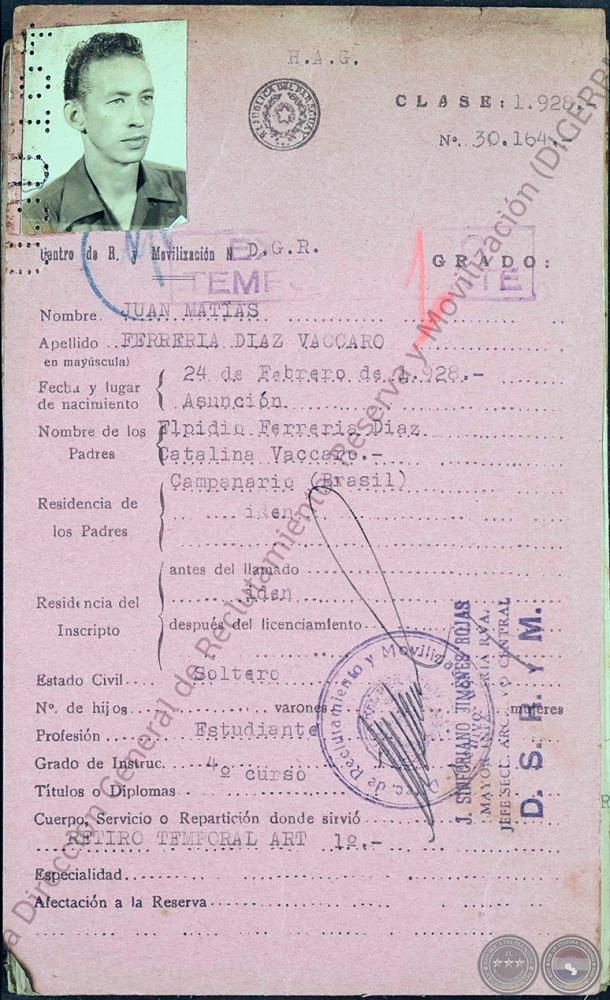 H.A.G.
REPUBLICA DEL PARAGUAY
CLASE: 1.928.
Nº. 30.164.
Centro de R. y Movilización N D.G.R.
GRADO:
Nombre JUAN MATIAS
Apellido FERRERIA DIAZ VACCARO
en mayúscula)
Fecha y lugar de nacimiento
24 de Febrero de 1.928.-
Asunción
Nombre de los Padres
Elpidio Ferreria Diaz
Catalina Vaccaro.-
Residencia de los Padres
Campanario (Brasil)
iden
Residencia del Inscripto
antes del llamado
iden
después del licenciamiento
Estado Civil Soltero
Nº. de hijos varones mujeres
Profesión Estudiante
Grado de Instruc. 4º curso
Títulos o Diplomas
Cuerpo, Servicio o Repartición donde sirvió
RETIRO TEMPORAL ART 1º.-
Especialidad
Afectación a la Reserva
Direc. de Reclutamiento y Moviliz
J. SINFORIANO JIMENES ROJAS
D. S. R. y M.
Dirección General de Reclutamiento, Reserva y Movilización (DIGERR